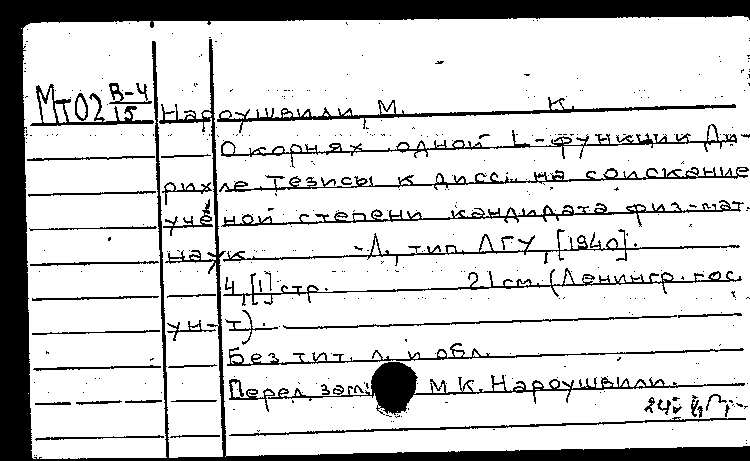 Мт02 В-4/15 Нароушвили, М. К.
О корнях одной L-функции Ди-
рихле. Тезисы к дисс. на соискание
учёной степени кандидата физ.-мат.
наук. -Л., тип. ЛГУ, [1940].
4, [1] стр. 21 см. (Ленингр. гос.
ун-т).
Без тит. л. и обл.
Перед загл. М.К. Нароушвили.